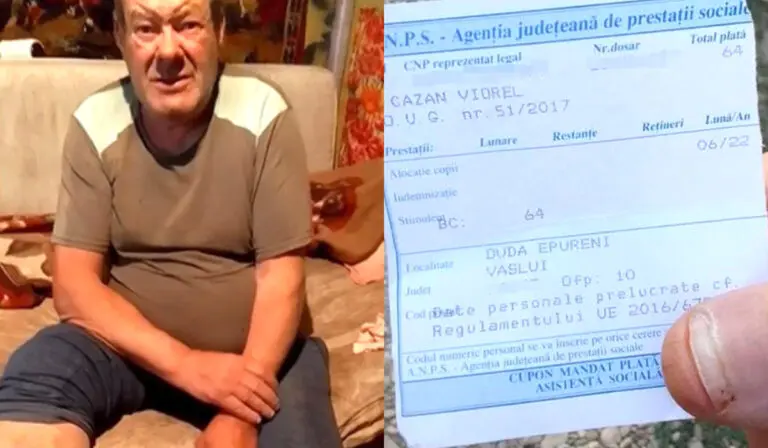 A.N.P.S. - Agenția județeană de prestații sociale
CNP reprezentat legal Nr.dosar Total plată
64
CAZAN VIOREL
O.U.G. nr.51/2017
Prestații: Lunare Restanțe Rețineri Lună/An
06/22
Alocație copii
Indemnizație
Stimulent
BC: 64
Localitate DUDA EPURENI
Județ VASLUI
Cod Ofp: 10
Date personale prelucrate cf.
Regulamentului UE 2016/67
Codul numeric personal se va înscrie pe orice cerere
A.N.P.S. - Agenția județeană de prestații sociale
CUPON MANDAT PLATĂ
ASISTENȚĂ SOCIALĂ